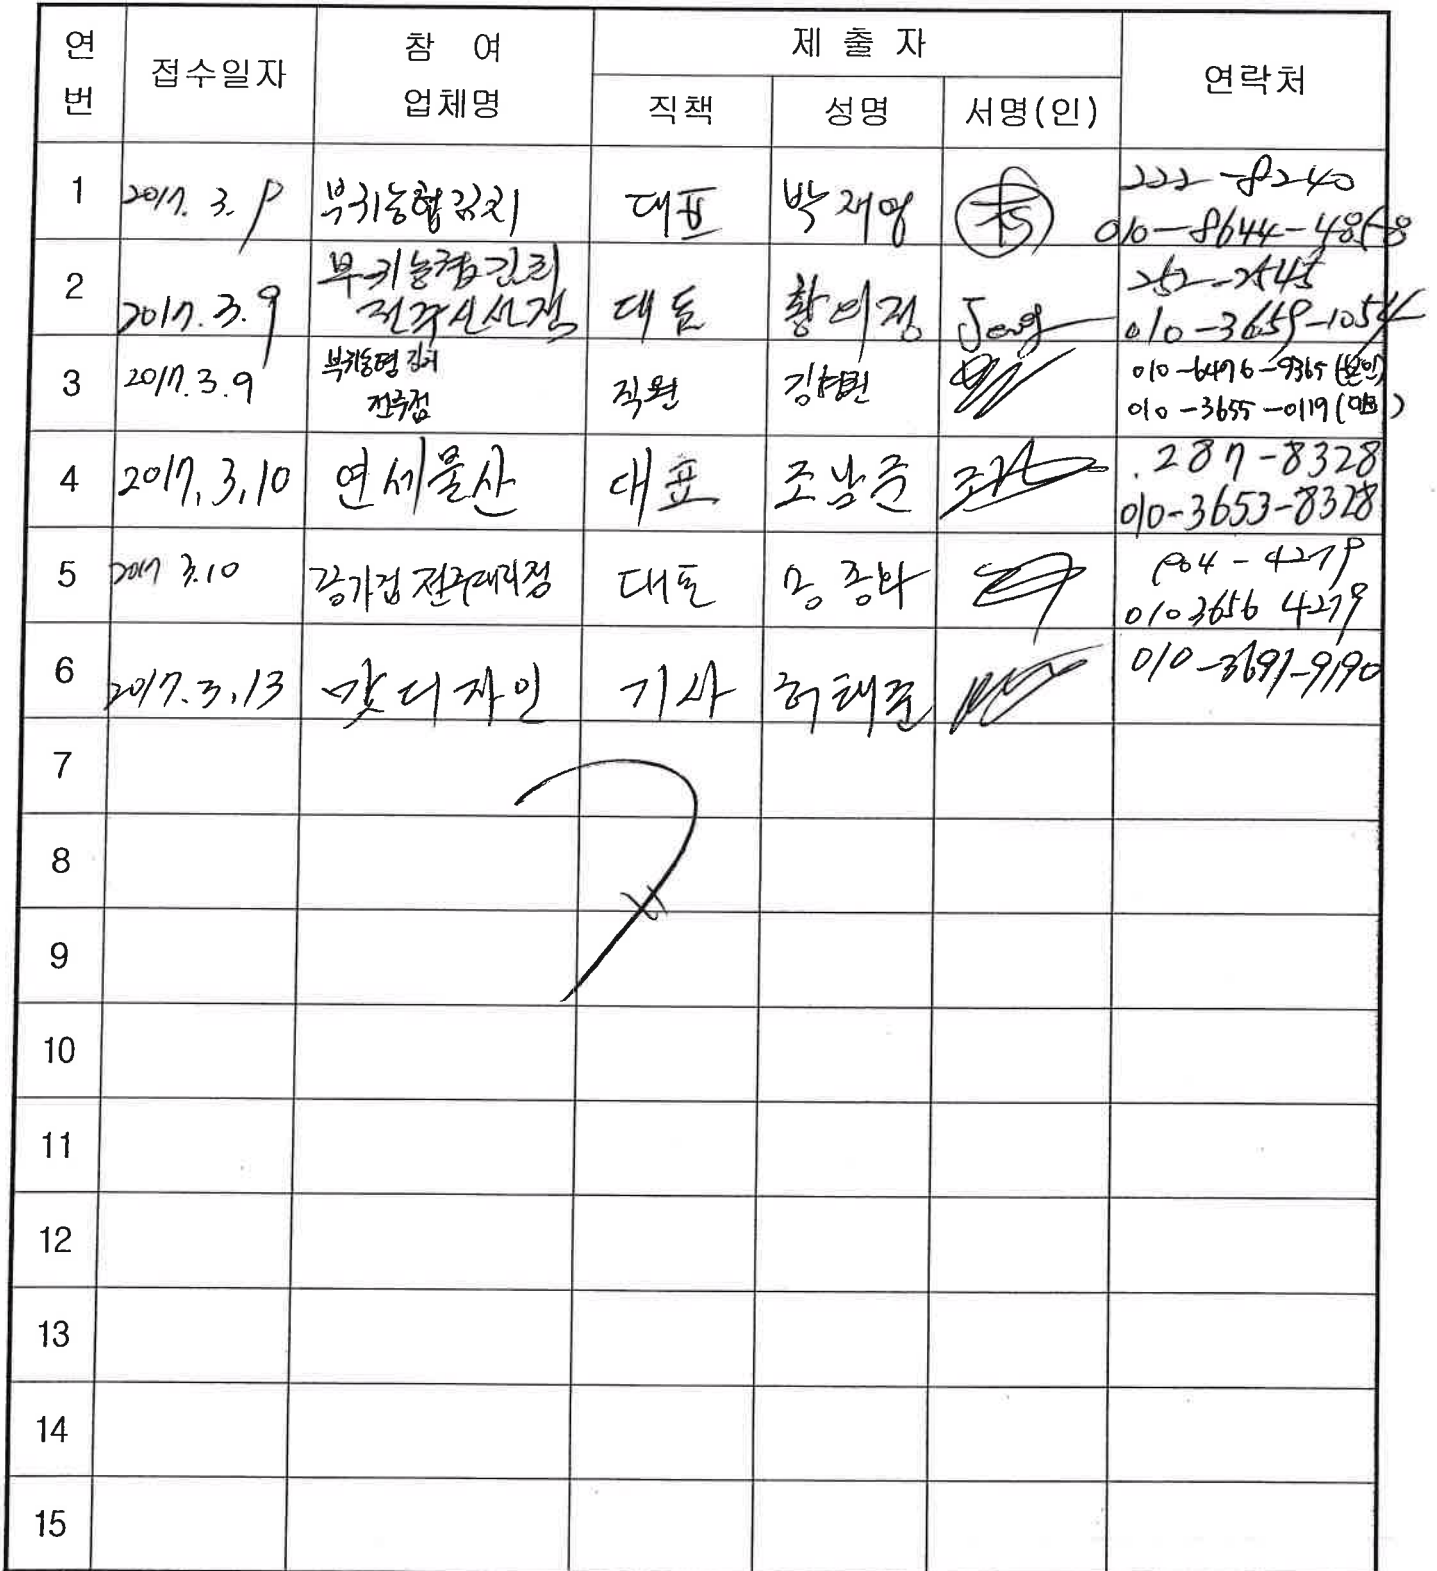 연번 접수일자 참 여 업체명 제 출 자 연락처
직책 성명 서명(인)
1 2017. 3. 9 부귀농협김치 대표 박재영 222-8240
010-8644-4858
2 2017. 3. 9 부귀농협김치 대표 황의정 Jeng 252-2545
전주신선점 010-3659-1054
3 2017. 3. 9 부귀농협김치 직원 010-6476-9365 (본인)
전주점 010-3655-0119
4 2017. 3. 10 연세물산 대표 조남준 287-8328
010-3653-8328
5 2017 3.10 전주대리점 대표 904-4279
010 3656 4279
6 2017. 3. 13 맞디자인 기사 허태준 010-3691-9190
7
8
9
10
11
12
13
14
15